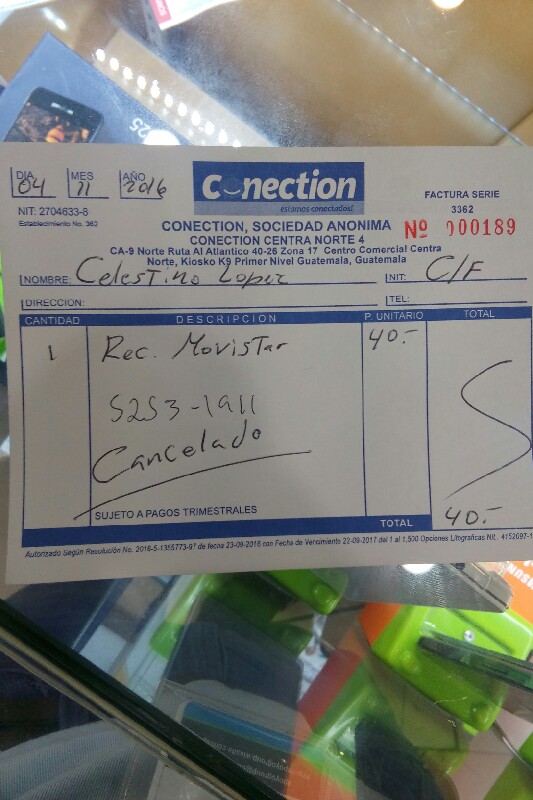 DIA MES AÑO
04 11 2016
Conection
estamos conectados!
NIT: 2704633-8
Establecimiento No. 362
FACTURA SERIE
3362
Nº 000189
CONECTION, SOCIEDAD ANONIMA
CONECTION CENTRA NORTE 4
CA-9 Norte Ruta Al Atlantico 40-26 Zona 17 Centro Comercial Centra
Norte, Kiosko K9 Primer Nivel Guatemala, Guatemala
NOMBRE: Celestino Lopez NIT: C/F
DIRECCION: TEL:
CANTIDAD DESCRIPCION P. UNITARIO TOTAL
1 Rec. Movistar 40.-
5253-1911
Cancelado
SUJETO A PAGOS TRIMESTRALES
TOTAL 40.-
Autorizado Según Resolución No. 2016-5-1355773-97 de fecha 23-09-2016 con Fecha de Vencimiento 22-09-2017 del 1 al 1,500 Opciones Litograficas Nit. 4152697-1